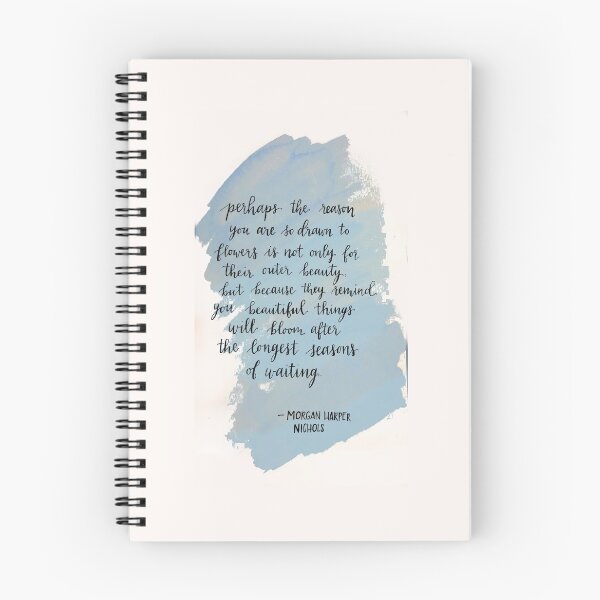 perhaps the reason
you are so drawn to
flowers is not only for
their outer beauty,
but because they remind
you beautiful things
will bloom after
the longest seasons
of waiting.
– MORGAN HARPER
NICHOLS